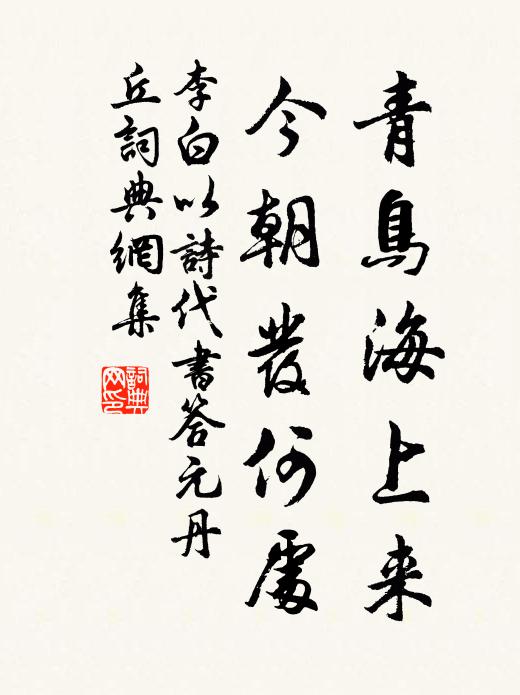 青鳥海上来
今朝發何處
李白以詩代書答元丹
丘詞典網集
詞典
网印